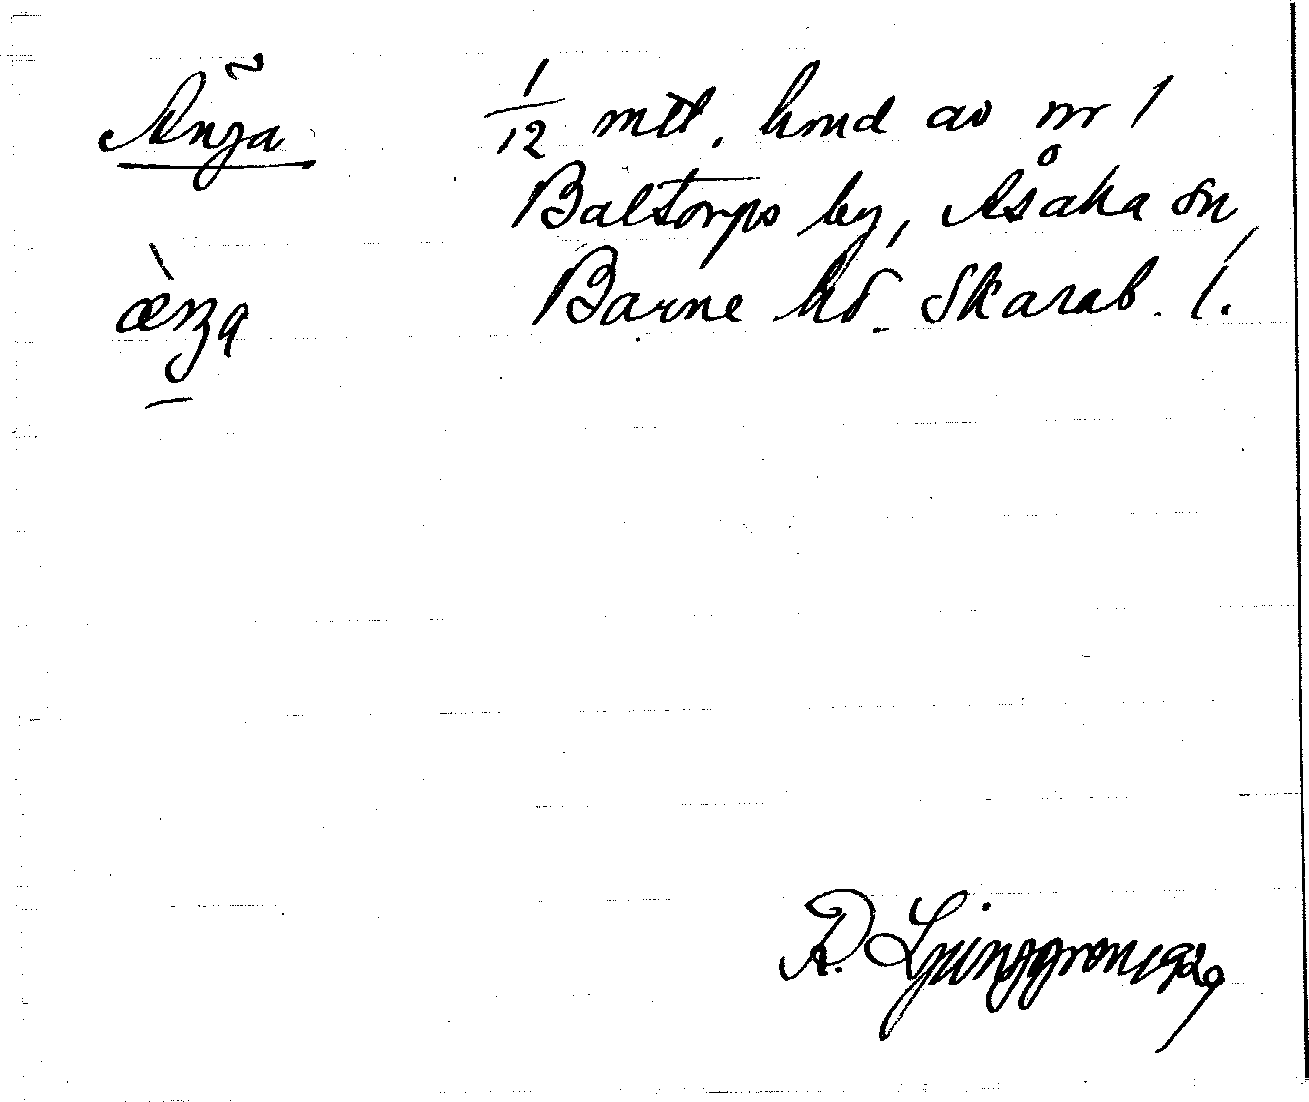 Änga
1/12 mtl. hmd av nr 1
Baltorps by, Åsaka sn,
Barne hd. Skarab. l.
æ̀nga
R. Ljunggren 1929